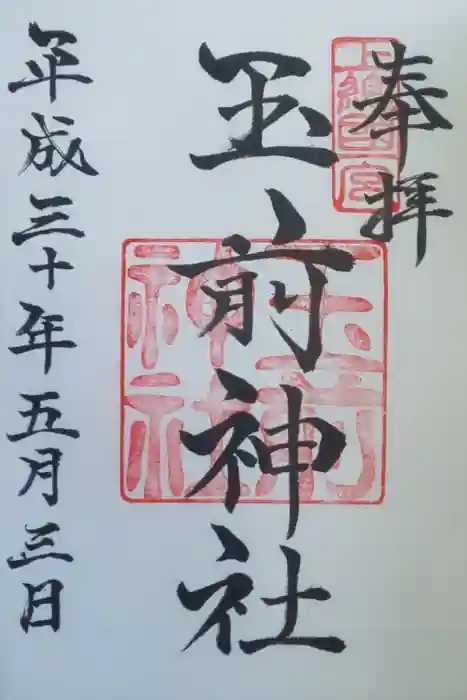 奉拝
上総国一宮
玉前神社
玉前神社
平成三十年五月三日